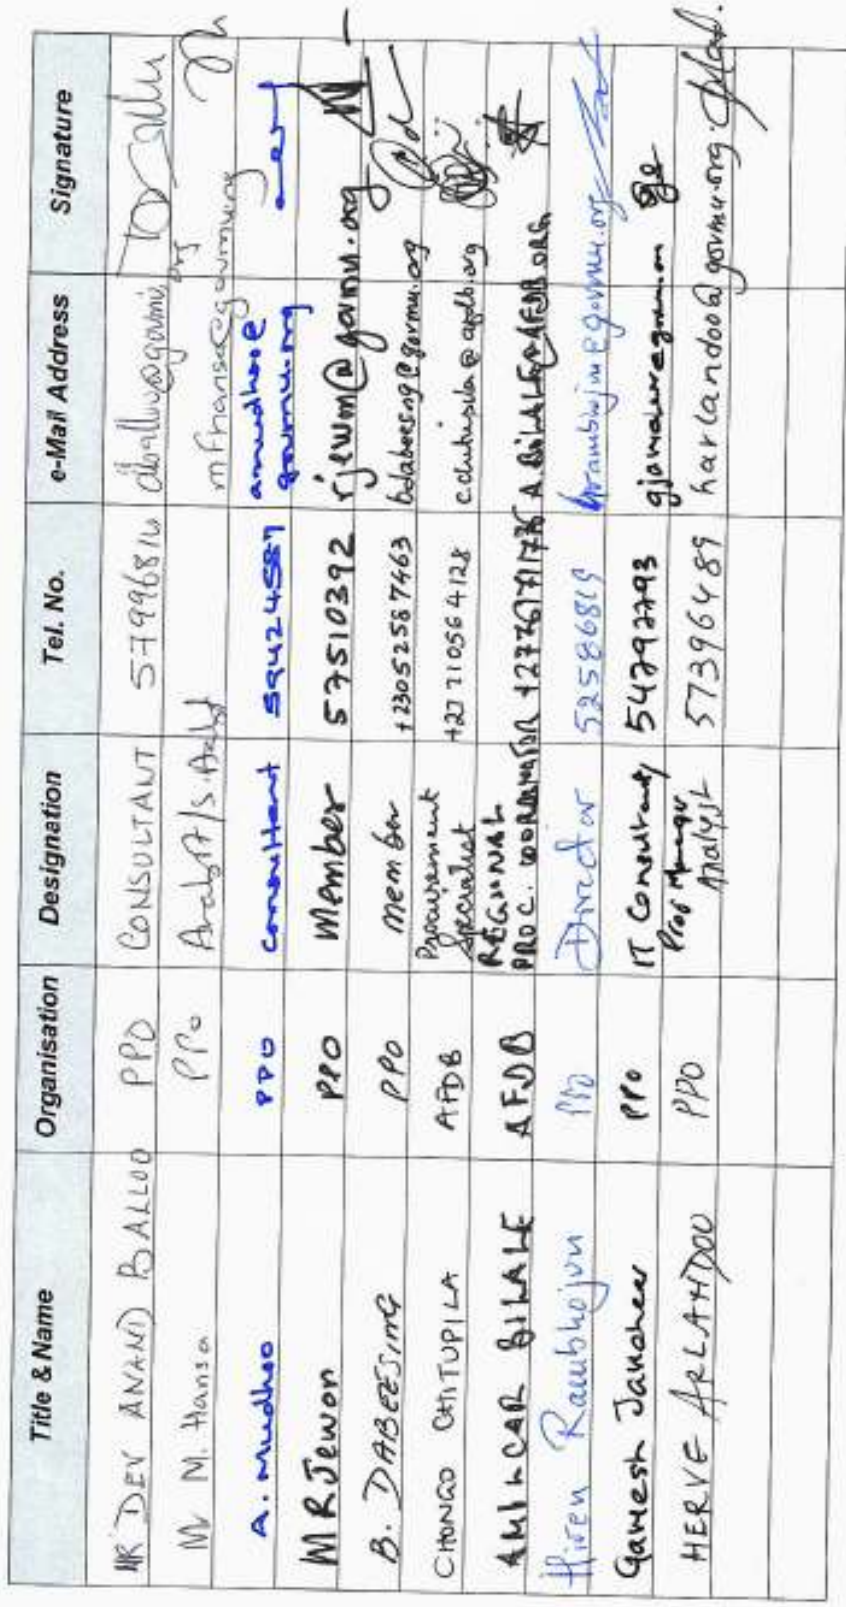 Title & Name Organisation Designation Tel. No. e-Mail Address Signature
MR DEV ANAND BALLOO PPO CONSULTANT 57996816 dballoo@govmu.org
Mr M. Hansa PPO Analyst/S. Analyst mfhansa@govmu.org
A. Mudhoo PPO Consultant 59424587 amudhoo@
govmu.org
MR Jewon PPO Member 57510392 rjewon@govmu.org
B. DABEESING PPO member +23052587463 bdabeesing@govmu.org
CHONGO CHITUPILA AFDB Procurement
Specialist +27710564128 c.chitupila@afdb.org
AMILCAR BILALE AFDB REGIONAL
PROC. COORDINATOR A.BILALE@AFDB.ORG
Hiren Rambhojun PPO Director 52586819 hrambhojun@govmu.org
Ganesh PPO IT Consultant/
Proj Manager 54792793
HERVE ARLANDOO PPO Analyst 57396489 harlandoo@govmu.org